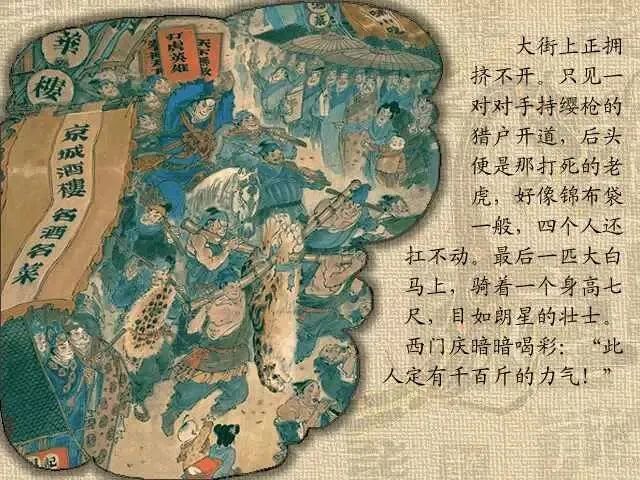 打虎英雄
天下無敵
華
樓
京城酒樓
名酒名菜
大街上正拥
挤不开。只见一
对对手持缨枪的
猎户开道，后头
便是那打死的老
虎，好像锦布袋
一般，四个人还
扛不动。最后一匹大白
马上，骑着一个身高七
尺，目如朗星的壮士。
西门庆暗暗喝彩：“此
人定有千百斤的力气！”